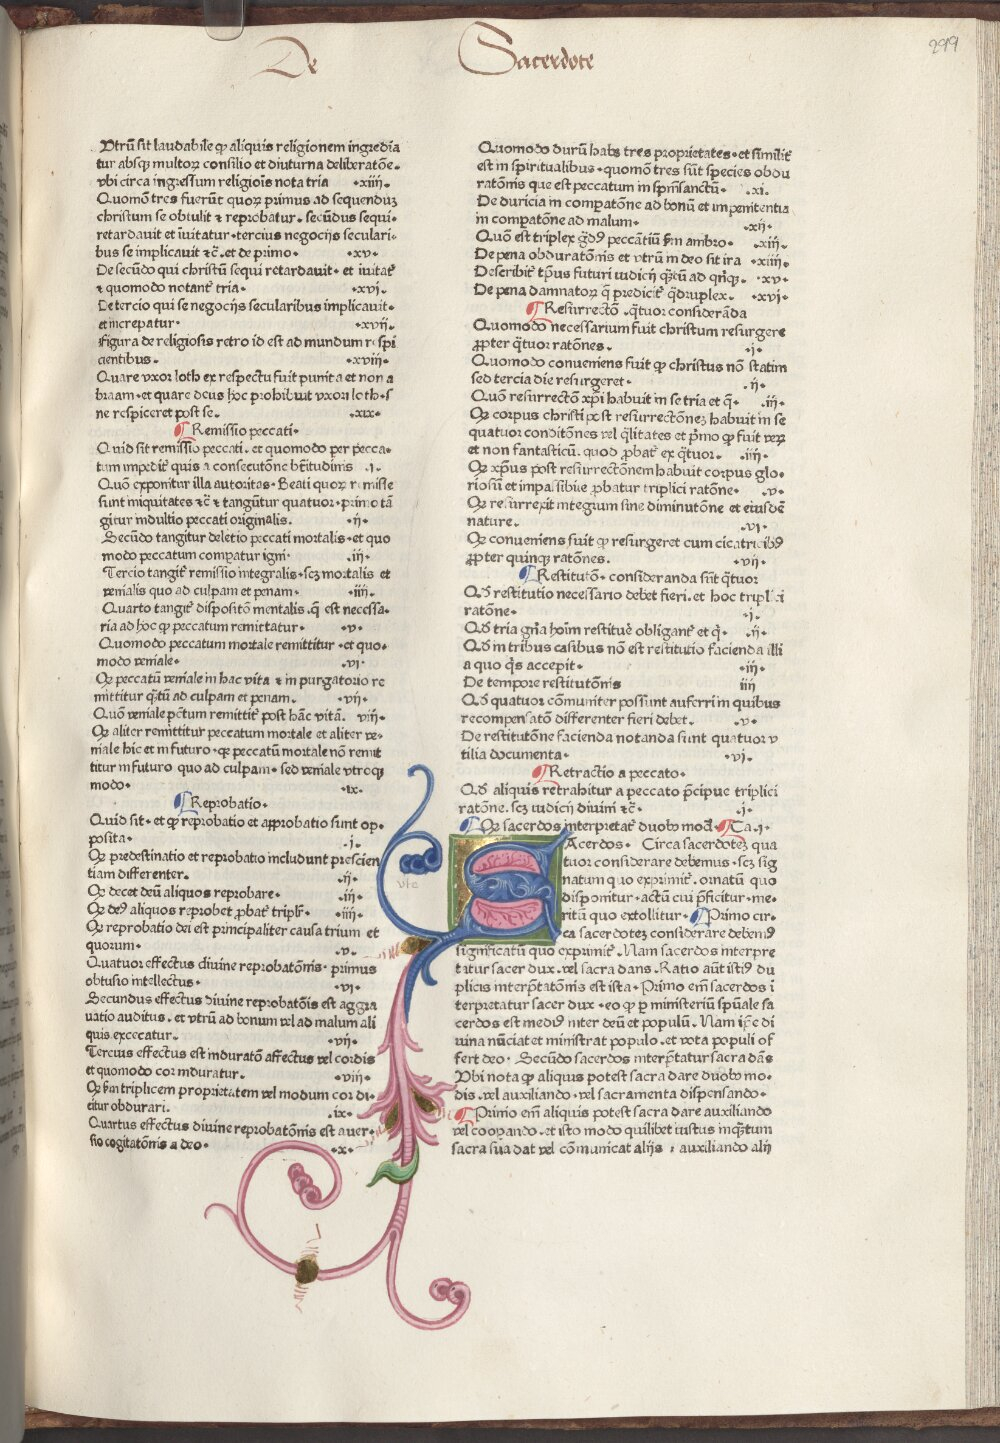 De Sacerdote
299
Vtrū sit laudabile ꝙ aliquis religionem ingredia
tur absqꝫ multoꝝ consilio et diuturna deliberatōe.
vbi circa ingressum religiois nota tria .xiiii.
Quomō tres fuerūt quoꝝ primus ad sequenduꝫ
christum se obtulit ⁊ reprobatur. secūdus sequi.
retardauit et iuitatur. tercius negocijs seculari.
bus se implicauit ⁊c̄. et de primo. .xv.
De secūdo qui christū sequi retardauit. et iuitat᷑
⁊ quomodo notant᷑ tria. .xvi.
De tercio qui se negocijs secularibus implicauit.
et increpatur. .xvij.
Figura de religiosis retro id est ad mundum respi
cientibus. .xviij.
Quare vxor loth ex respectu fuit punita et non a
braam. et quare deus hoc prohibuit vxori loth. s
ne respiceret post se. .xix.
¶ Remissio peccati.
Quid sit remissio peccati. et quomodo per pecca.
tum impedit᷑ quis a consecutōne btītudinis .i.
Quō exponitur illa autoritas. Beati quoꝝ remisse
sunt iniquitates ⁊c̄ ⁊ tangūtur quatuor. primo tā
gitur indultio peccati originalis. .ij.
Secūdo tangitur deletio peccati mortalis. et quo
modo peccatum compatur igni. .iij.
Tercio tangit᷑ remissio integralis. scꝫ mortalis et
venialis quo ad culpam et penam. .iiij.
Quarto tangit᷑ dispositō mentalis. q̄ est necessa.
ria ad hoc ꝙ peccatum remittatur. .v.
Quomodo peccatum mortale remittitur. et quo.
modo veniale. .vi.
Qꝫ peccatū veniale in hac vita ⁊ in purgatorio re
mittitur q̄tū ad culpam et penam. .vij.
Quō veniale pctum remittit᷑ post hāc vitā. viij.
Qꝫ aliter remittitur peccatum mortale et aliter ve.
niale hic et in futuro. qꝫ peccatū mortale nō remit
titur in futuro quo ad culpam. sed veniale vtroqꝫ
modo. .ix.
¶ Reprobatio.
Quid sit. et ꝙ reprobatio et approbatio sunt op.
posita. .i.
Qꝫ predestinatio et reprobatio includunt prescien
tiam differenter. .ij.
Qꝫ decet deū aliquos reprobare. .iij.
Qꝫ de9 aliquos reprobet ꝓbat᷑ triplr. .iiij.
Qꝫ reprobatio dei est principaliter causa trium et
quorum. .v.
Quatuor effectus diuine reprobatōnis. primus
obtusio intellectus. .vj.
Secundus effectus diuine reprobatōis est aggra
uatio auditus. et vtrū ad bonum vel ad malum ali
quis excecatur. .vij.
Tercius effectus est induratō affectus vel cordis
et quomodo cor induratur. .viij.
Qꝫ s̄m triplicem proprietatem vel modum cor di.
citur obdurari. .ix.
Quartus effectus diuine reprobatōnis est auer.
sio cogitatōnis a deo. .x.
Quomodo durū habꝫ tres proprietates. et similit᷑
est in spiritualibus. quomō tres sūt species obdu
ratōnis que est peccatum in spm̄sanctū. .xi.
De duricia in compatōne ad bonū et impenitentia
in compatōne ad malum. .xij.
Quō est triplex gd9 peccātiū s̄m ambro. .xiij.
De pena obduratōnis et vtrū in deo sit ira .xiiij.
Describit᷑ tp̄us futuri iudicij q̄tū ad qnqꝫ. .xv.
De pena damnatoꝝ q̄ predicit᷑ q̄druplex. .xvi.
¶ Resurrectō .q̄tuor considerāda
Quomodo necessarium fuit christum resurgere
ꝓpter q̄tuor ratōnes. .i.
Quomodo conueniens fuit ꝙ christus nō statim
sed tercia die resurgeret. .ij.
Quō resurrectō xpi habuit in se tria et q̄. .iij.
Qꝫ corpus christi post resurrectōneꝫ habuit in se
quatuor conditōnes vel q̄litates et pmo ꝙ fuit veꝝ
et non fantasticū. quod ꝓbat᷑ ex q̄tuor. .iiij.
Qꝫ xpus post resurrectōnem habuit corpus glo.
riosū et impassibile ꝓbatur triplici ratōne. .v.
Qꝫ resurrexit integrum sine diminutōne et eiusdē
nature. .vi.
Qꝫ conueniens fuit ꝙ resurgeret cum cicatricib9
ꝓpter quinqꝫ ratōnes. .vij.
¶ Restitutō. consideranda sūt q̄tuor
Qd restitutio necessario debet fieri. et hoc triplici
ratōne. .i.
Qd tria gn̄a hoīm restituē obligant᷑ et q̄. .ij.
Qd in tribus casibus nō est restitutio facienda illi
a quo q̄s accepit. .iij.
De tempore restitutōnis iiij
Qd quatuor cōmuniter possunt auferri in quibus
recompensatō differenter fieri debet. .v.
De restitutōne facienda notanda sunt quatuor v
tilia documenta. .vi.
¶ Retractio a peccato.
Qd aliquis retrahitur a peccato p̄cipue triplici
ratōne. scꝫ iudicij diuini ⁊c̄. .i.
¶ Qꝫ sacerdos interpretat᷑ duobꝫ mod. ¶ Ca.i.
SAcerdos. Circa sacerdoteꝫ qua
tuor considerare debemus. scꝫ sig
natum quo exprimit᷑. ornatū quo
disponitur. actū cui p̄ficitur. me.
ritū quo extollitur. ¶ Primo cir.
ca sacerdoteꝫ considerare debem9
significatū quo exprimit᷑. Nam sacerdos interpre
tatur sacer dux. vel sacra dans. Ratio aūt isti9 du
plicis interp̄tatōnis est ista. Primo em̄ sacerdos i
terpretatur sacer dux. eo ꝙ p ministeriū spūale sa
cerdos est medi9 inter deū et populū. Nam ip̄e di
uina nūciat et ministrat populo. et vota populi of
fert deo. Secūdo sacerdos interp̄tatur sacra dās
Vbi nota ꝙ aliquis potest sacra dare duobꝫ mo.
dis. vel auxiliando. vel sacramenta dispensando.
¶ Primo em̄ aliquis potest sacra dare auxiliando
vel coopando. et isto modo quilibet iustus inq̄tum
sacra sua dat vel cōmunicat alijs ⁊ auxiliando alij